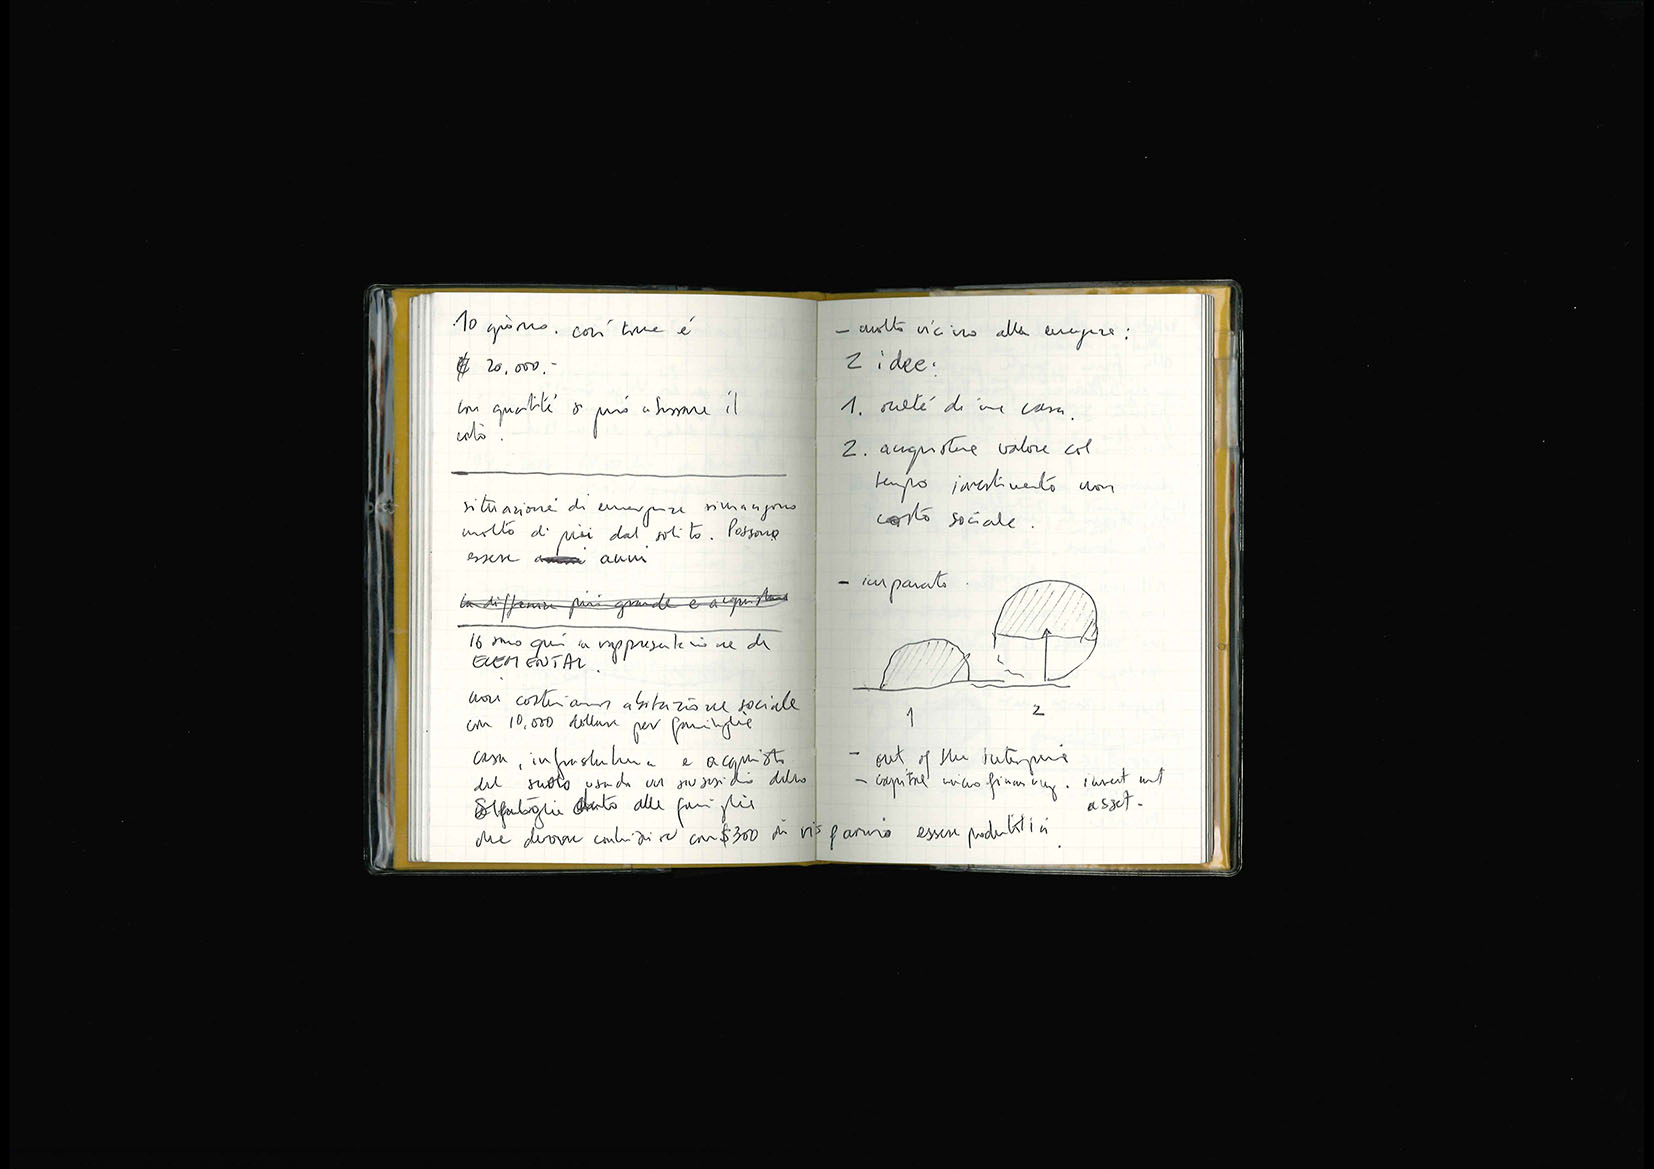 10 giorno. così come é
$ 20.000.-
con quantité si può abassare il
costo.
situazioné di emergenze rimangono
molto di più dal solito. Possono
essere anni
la differenza più grande e acquistare
Io sono qui a rappresentazione de
ELEMENTAL.
noi costruiamo abitazione sociale
con 10,000 dollari per famiglie
casa, infrastruttura e acquisto
del suolo usando un sussidio dello
dato alle famiglie
che devono con $300 di risparmio essere
- molto vicino alla emergenze:
2 idee:
1. meté di una casa.
2. acquistare valore col
tempo investimento non
costo sociale.
- imparato
1 2
- out of the
- capital micro financing. invest not
asset.